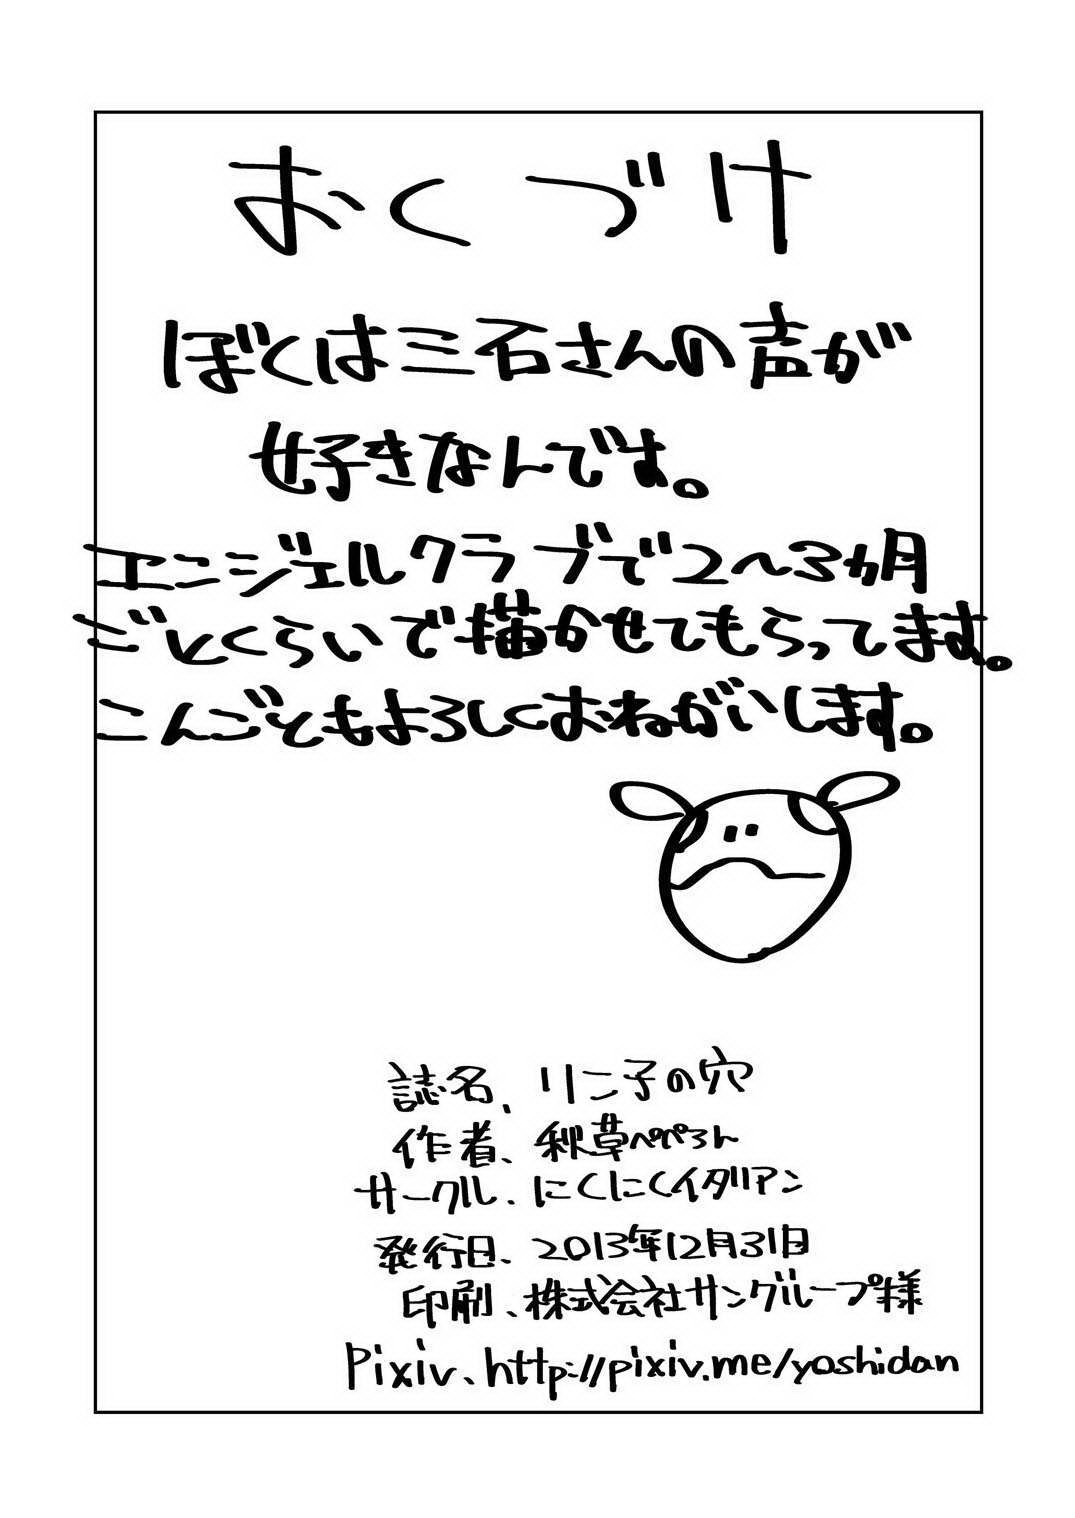 おくづけ
ぼくは三石さんの声が
好きなんです。
エンジェルクラブで2～3ヵ月
ごとくらいで描かせてもらってます。
こんごともよろしくおねがいします。
誌名、リン子の穴
作者、秋草ぺぺろん
サークル、にくにくイタリアン
発行日、2013年12月31日
印刷、株式会社サングループ様
Pixiv、http://pixiv.me/yoshidan